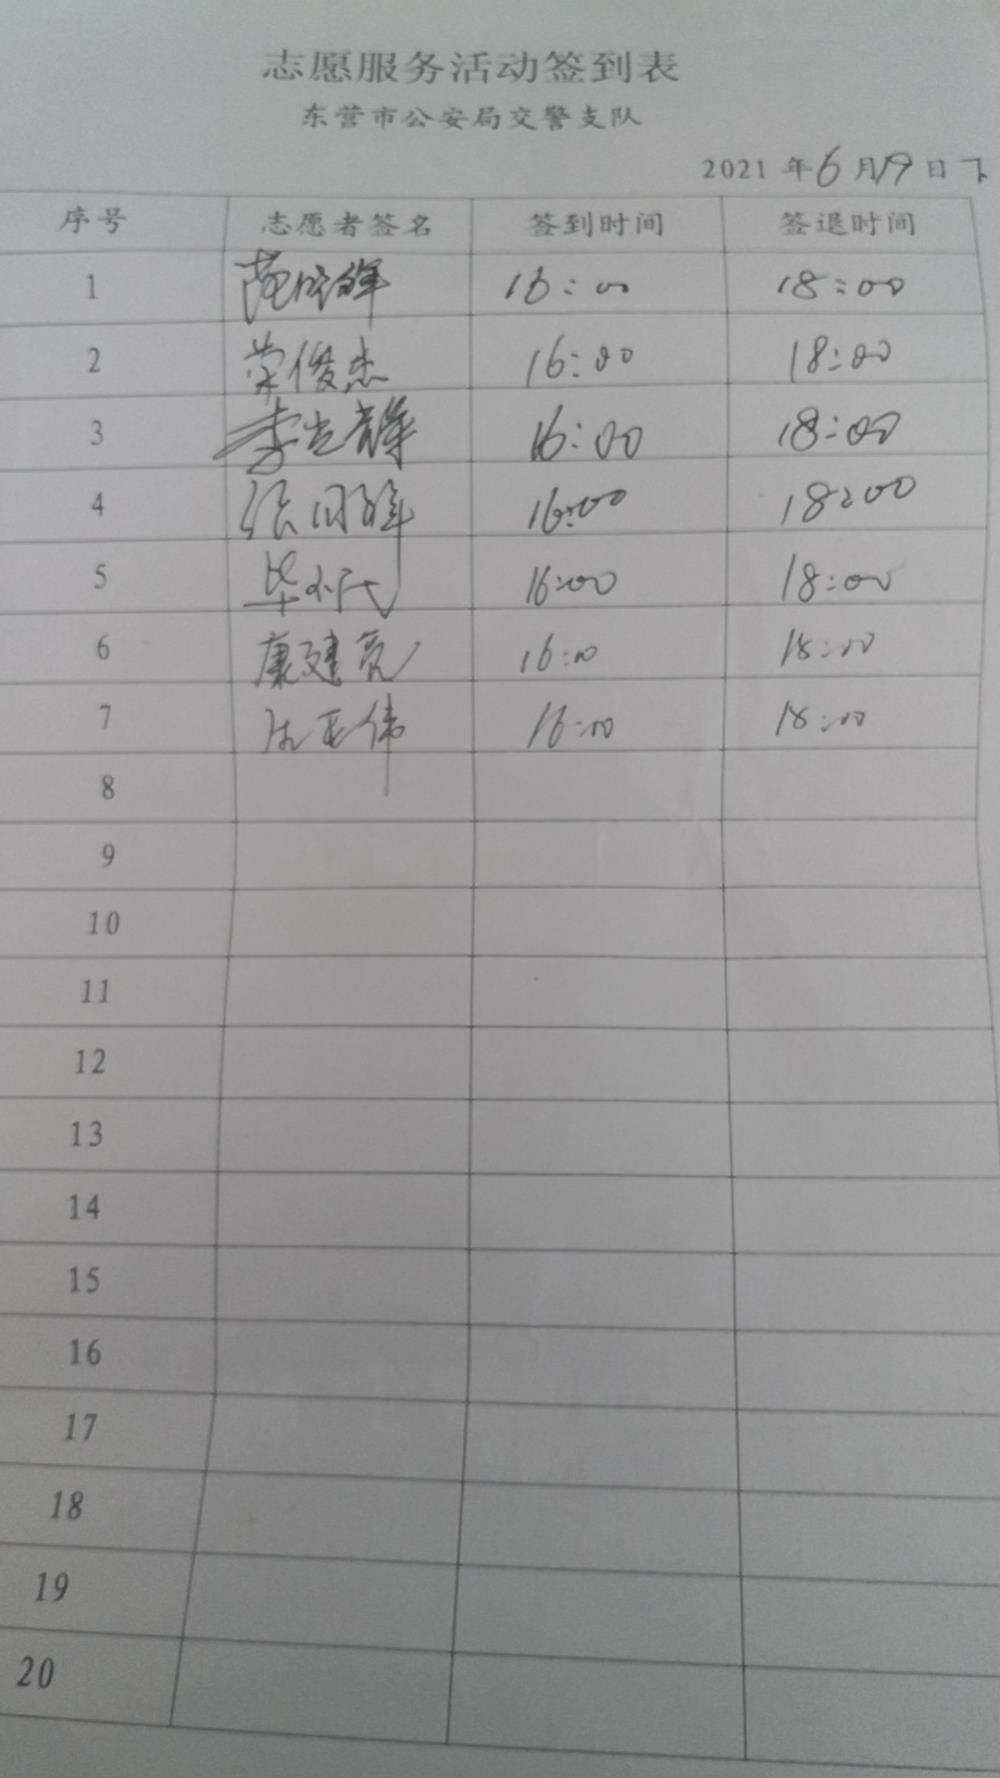 志愿服务活动签到表
东营市公安局交警支队
2021 年 6 月 19 日 下
序号 志愿者签名 签到时间 签退时间
1 16:00 18:00
2 荣俊杰 16:00 18:00
3 16:00 18:00
4 16:00 18:00
5 毕 16:00 18:00
6 康建亮 16:00 18:00
7 亚伟 16:00 18:00
8
9
10
11
12
13
14
15
16
17
18
19
20